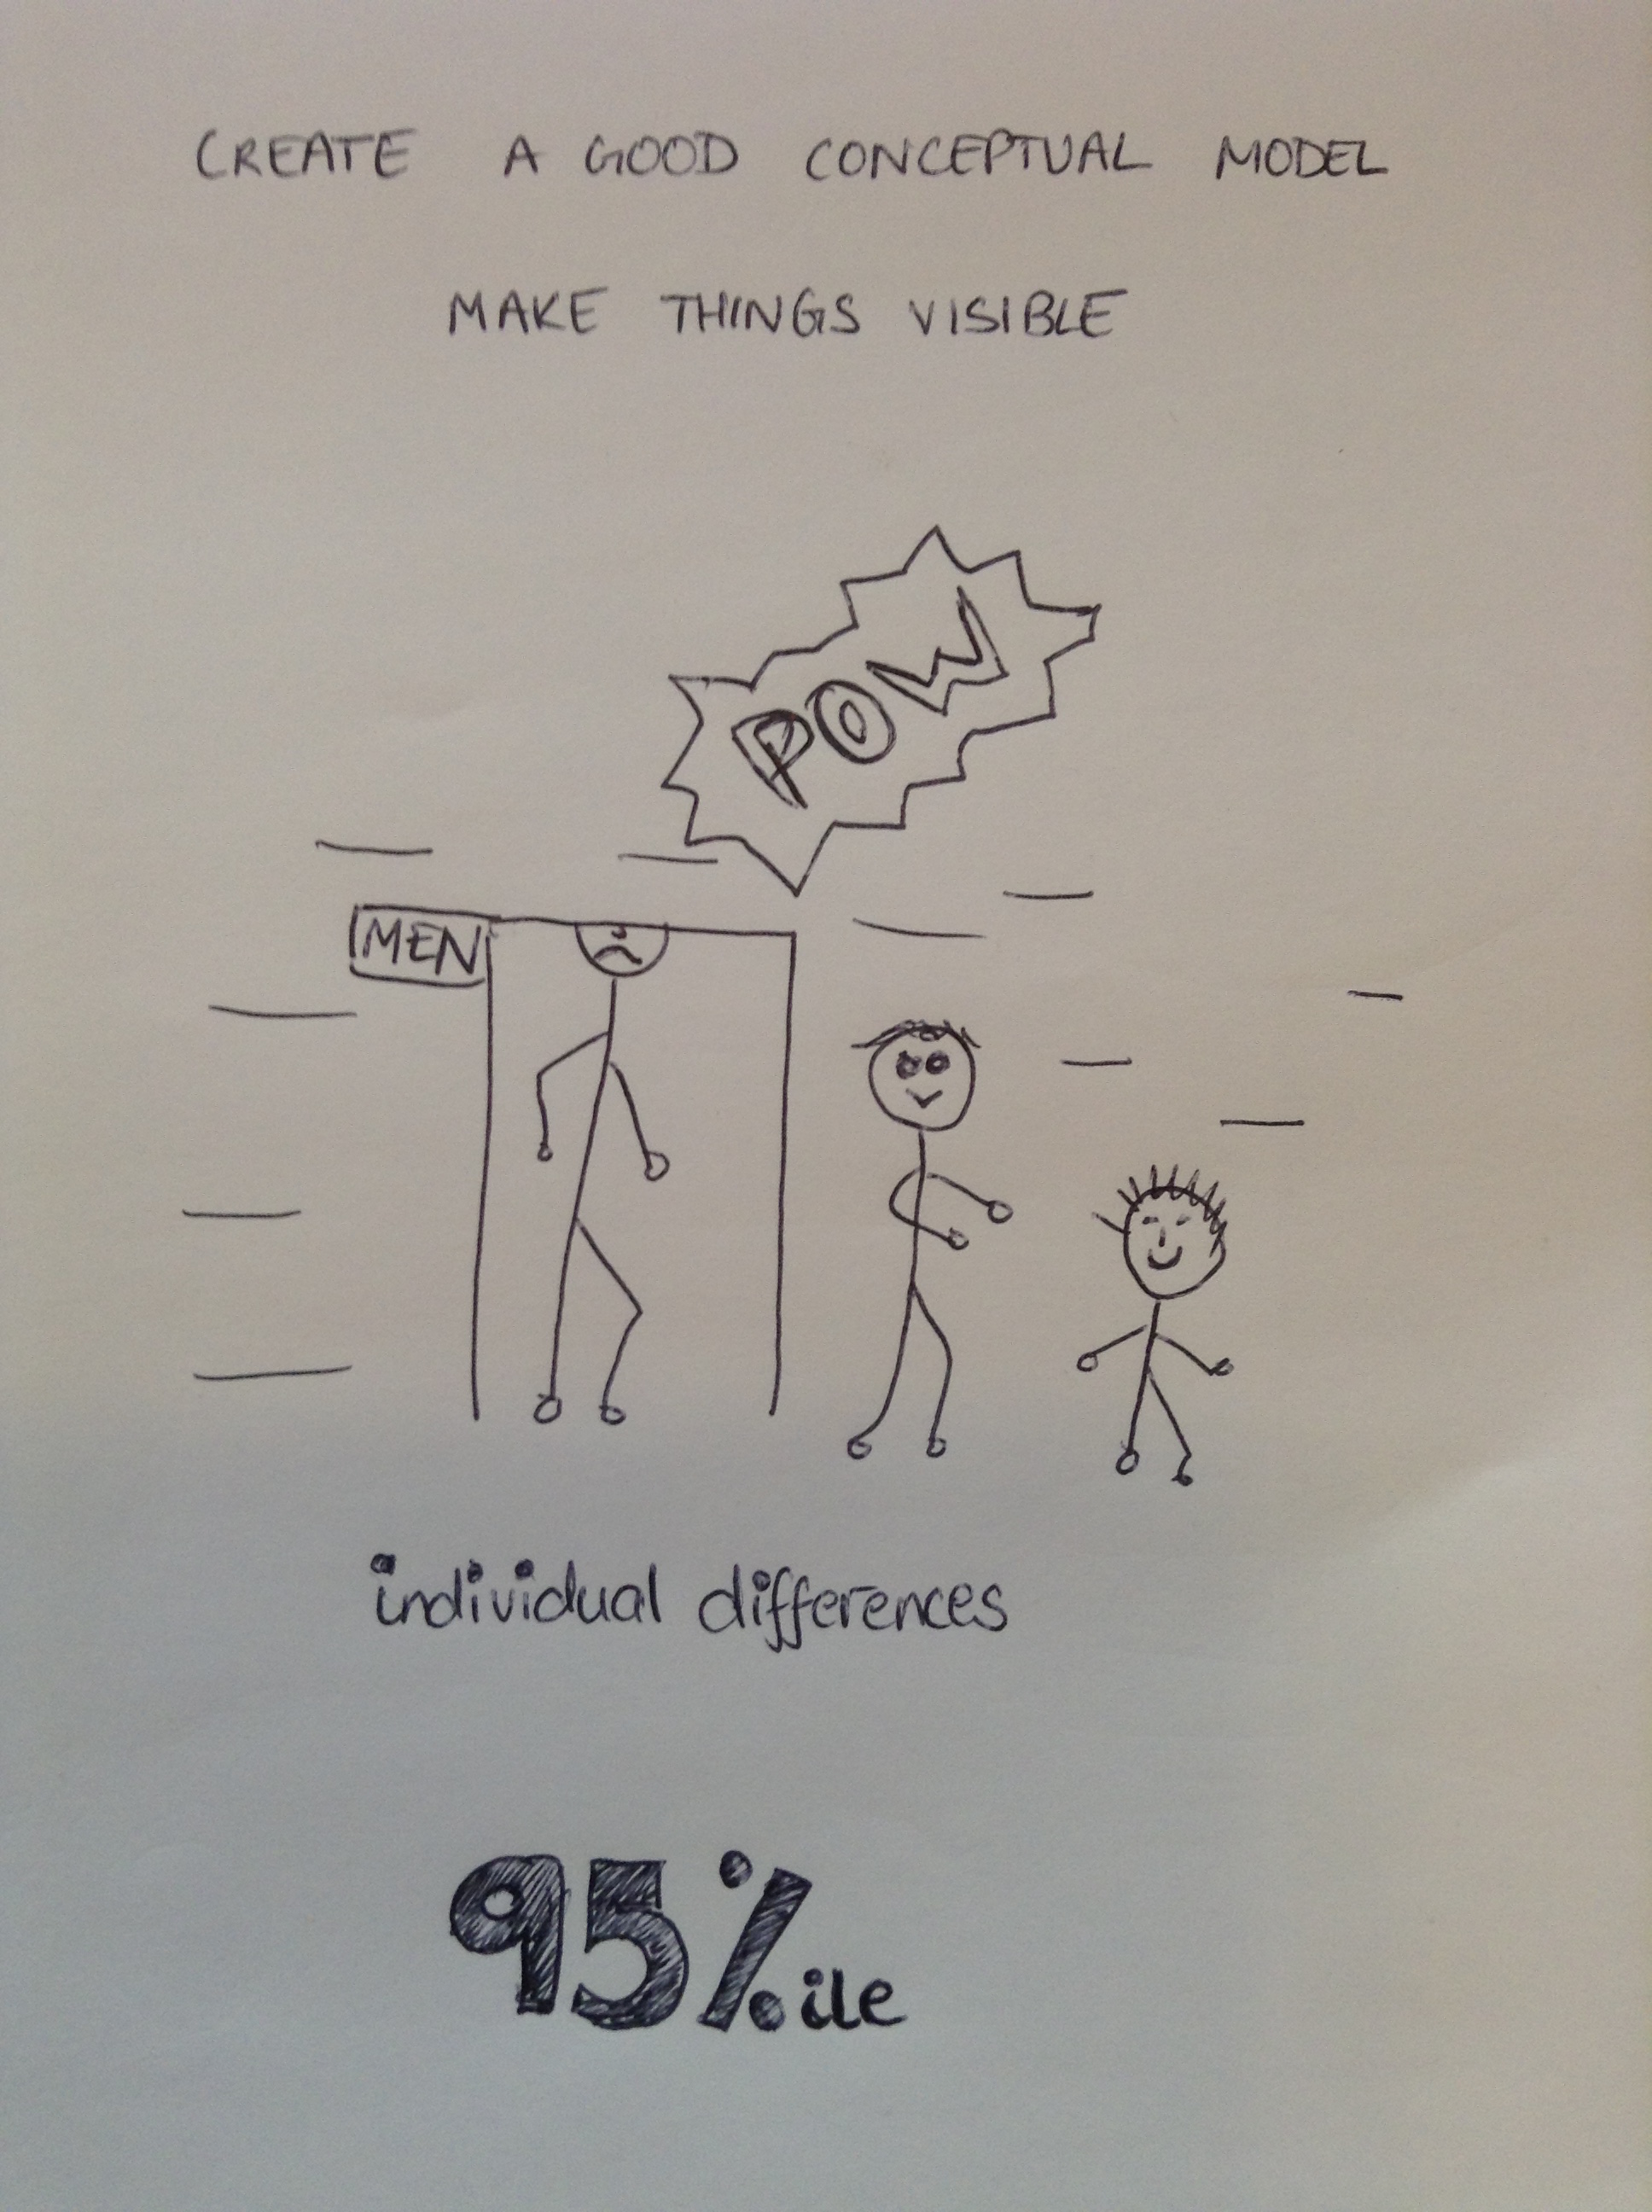 CREATE A GOOD CONCEPTUAL MODEL
MAKE THINGS VISIBLE
POW
MEN
individual differences
95%ile